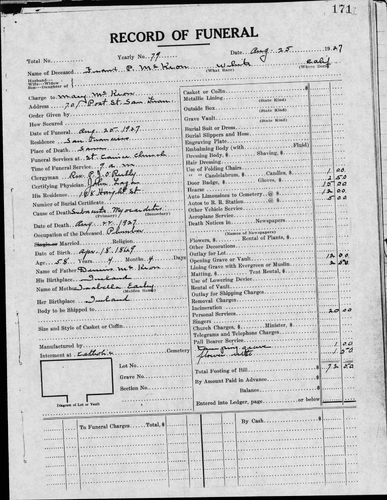 171
RECORD OF FUNERAL
Total No. Yearly No. 79 Date Aug 25 1927
Name of Deceased Frank P. McKeon White Calif
(What Race) (Where Born)
Husband
Wife Widow
Son Daughter of
Charge to Mary McKeon
Address 701 Post St. San Fran.
Order Given by
How Secured
Date of Funeral Aug. 25. 1927
Residence San Francisco
Place of Death Same
Funeral Services at Church
Time of Funeral Service 9 a.m.
Clergyman Rev. P. J. O'Reilly
Certifying Physician John
His Residence St
Number of Burial Certificate
Cause of Death Myocarditis
(Secondary)
Date of Death Aug. 1927.
Occupation of the Deceased Plumber
Single or Married Religion
Date of Birth Apr. 18. 1869
Age 58 Years 4 Months 4 Days
Name of Father Dennis McKeon
His Birthplace Ireland
Name of Mother
(Maiden Name)
Her Birthplace Ireland
Body to be Shipped to
Size and Style of Casket or Coffin
Manufactured by
Interment at Catholic Cemetery
Lot No.
Grave No.
Section No.
Diagram of Lot or Vault
Casket or Coffin
Metallic Lining
(State Kind)
Outside Box
(State Kind)
Grave Vault
(State Kind)
Burial Suit or Dress
Burial Slippers and Hose
Engraving Plate
Embalming Body (with Fluid)
Dressing Body, $ Shaving, $
Hair Dressing
Use of Folding Chairs 1.00
" " Candelabrum, $ Candles, $ 2.50
Door Badge, $ Gloves, $ 15.00
Hearse 12.00
Auto Limousines to Cemetery @ $ 5.00
Autos to R. R. Station @ $
Other Vehicle Service
Aeroplane Service
Death Notices in Newspapers
(Names of Newspapers)
Flowers, $ Rental of Plants, $
Other Decorations
Outlay for Lot
Opening Grave or Vault 12.00
Lining Grave with Evergreen or Muslin 2.50
Matting, $ Tent Rental, $
Use of Lowering Device
Rental of Vault
Outlay for Shipping Charges
Removal Charges
Incineration
Personal Services 20.00
Singers
Church Charges, $ Minister, $
Telegrams and Telephone Charges
Pall Bearer Service
1.00
1.50
Total Footing of Bill $ 72.50
By Amount Paid in Advance
Balance $
Entered into Ledger, page or below
To Funeral Charges Total $ By Cash $